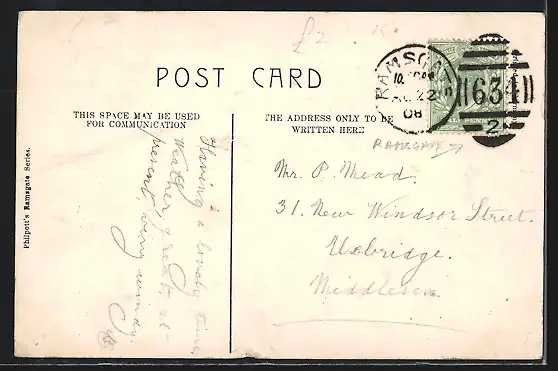 £2
POST CARD
THIS SPACE MAY BE USED
FOR COMMUNICATION
THE ADDRESS ONLY TO BE
WRITTEN HERE
RAMSGATE
AU 22
08
634
2
RAMSGATE
Having a lovely time,
weather great, at
present, very windy.
Mr. P. Mead.
31. New Windsor Street.
Uxbridge.
Middlesex.
Philpott's Ramsgate Series.